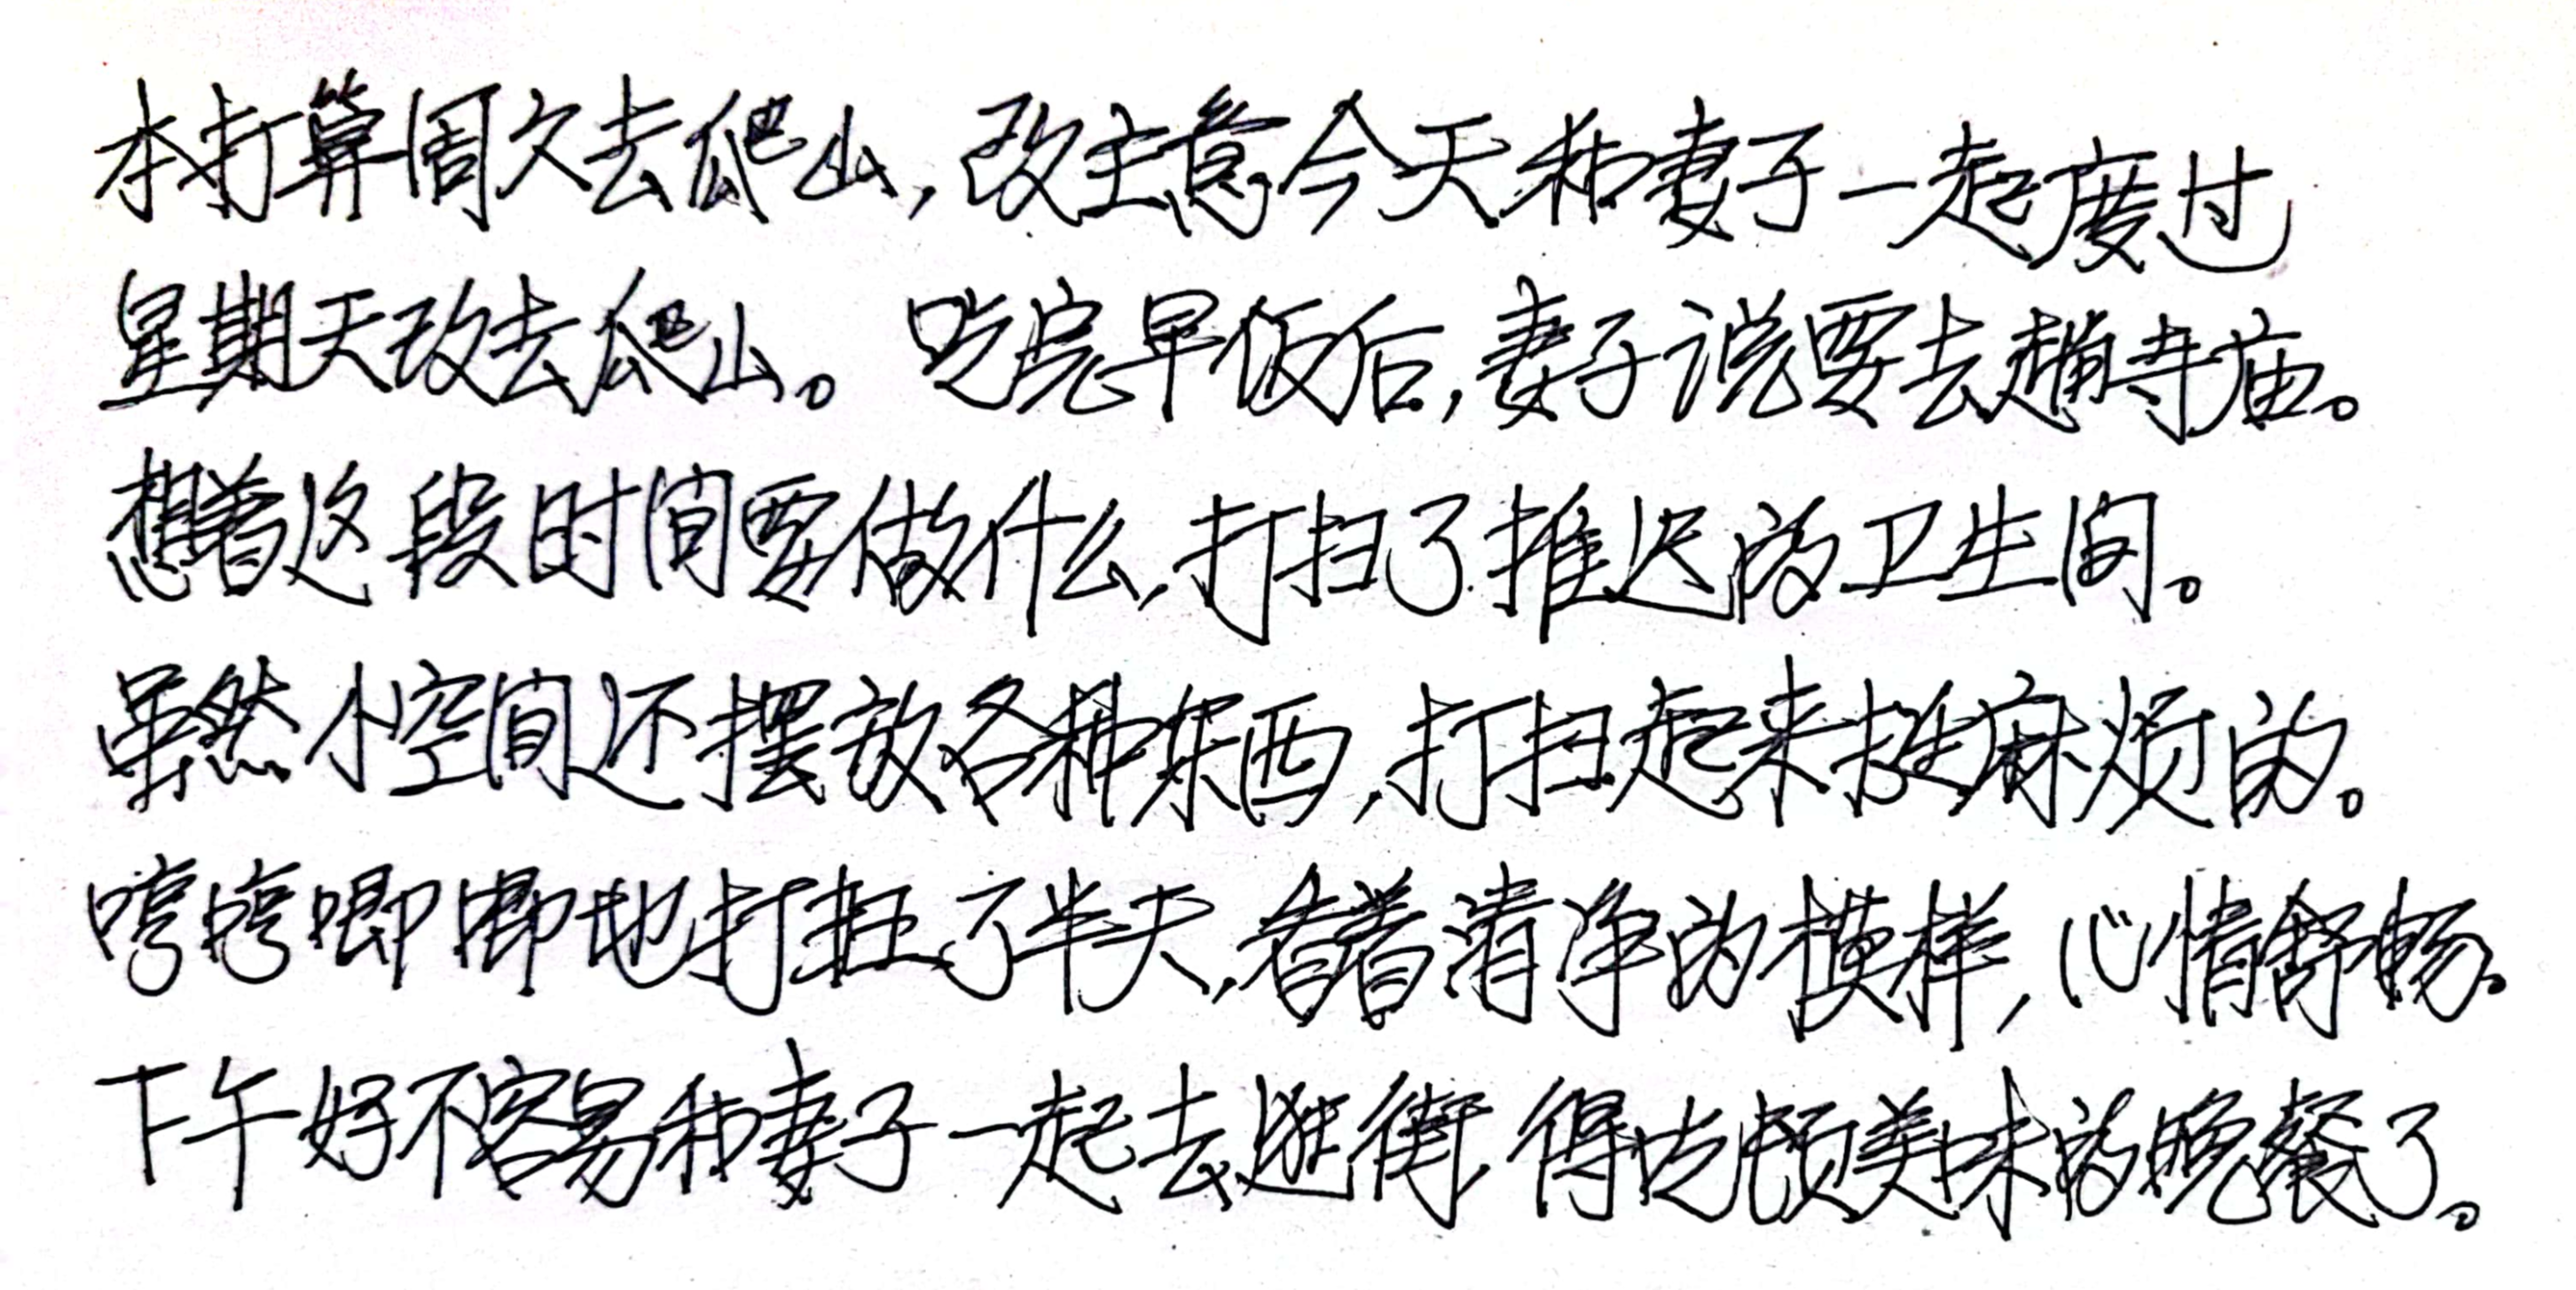 本打算周六去爬山,改主意今天和妻子一起度过
星期天改去爬山。吃完早饭后,妻子说要去趟寺庙。
想着这段时间要做什么,打扫了推迟的卫生间。
虽然小空间还摆放各种东西,打扫起来挺麻烦的。
哼哼唧唧地打扫了半天,看着清净的模样,心情舒畅。
下午好不容易和妻子一起去逛街,得吃顿美味的晚餐了。